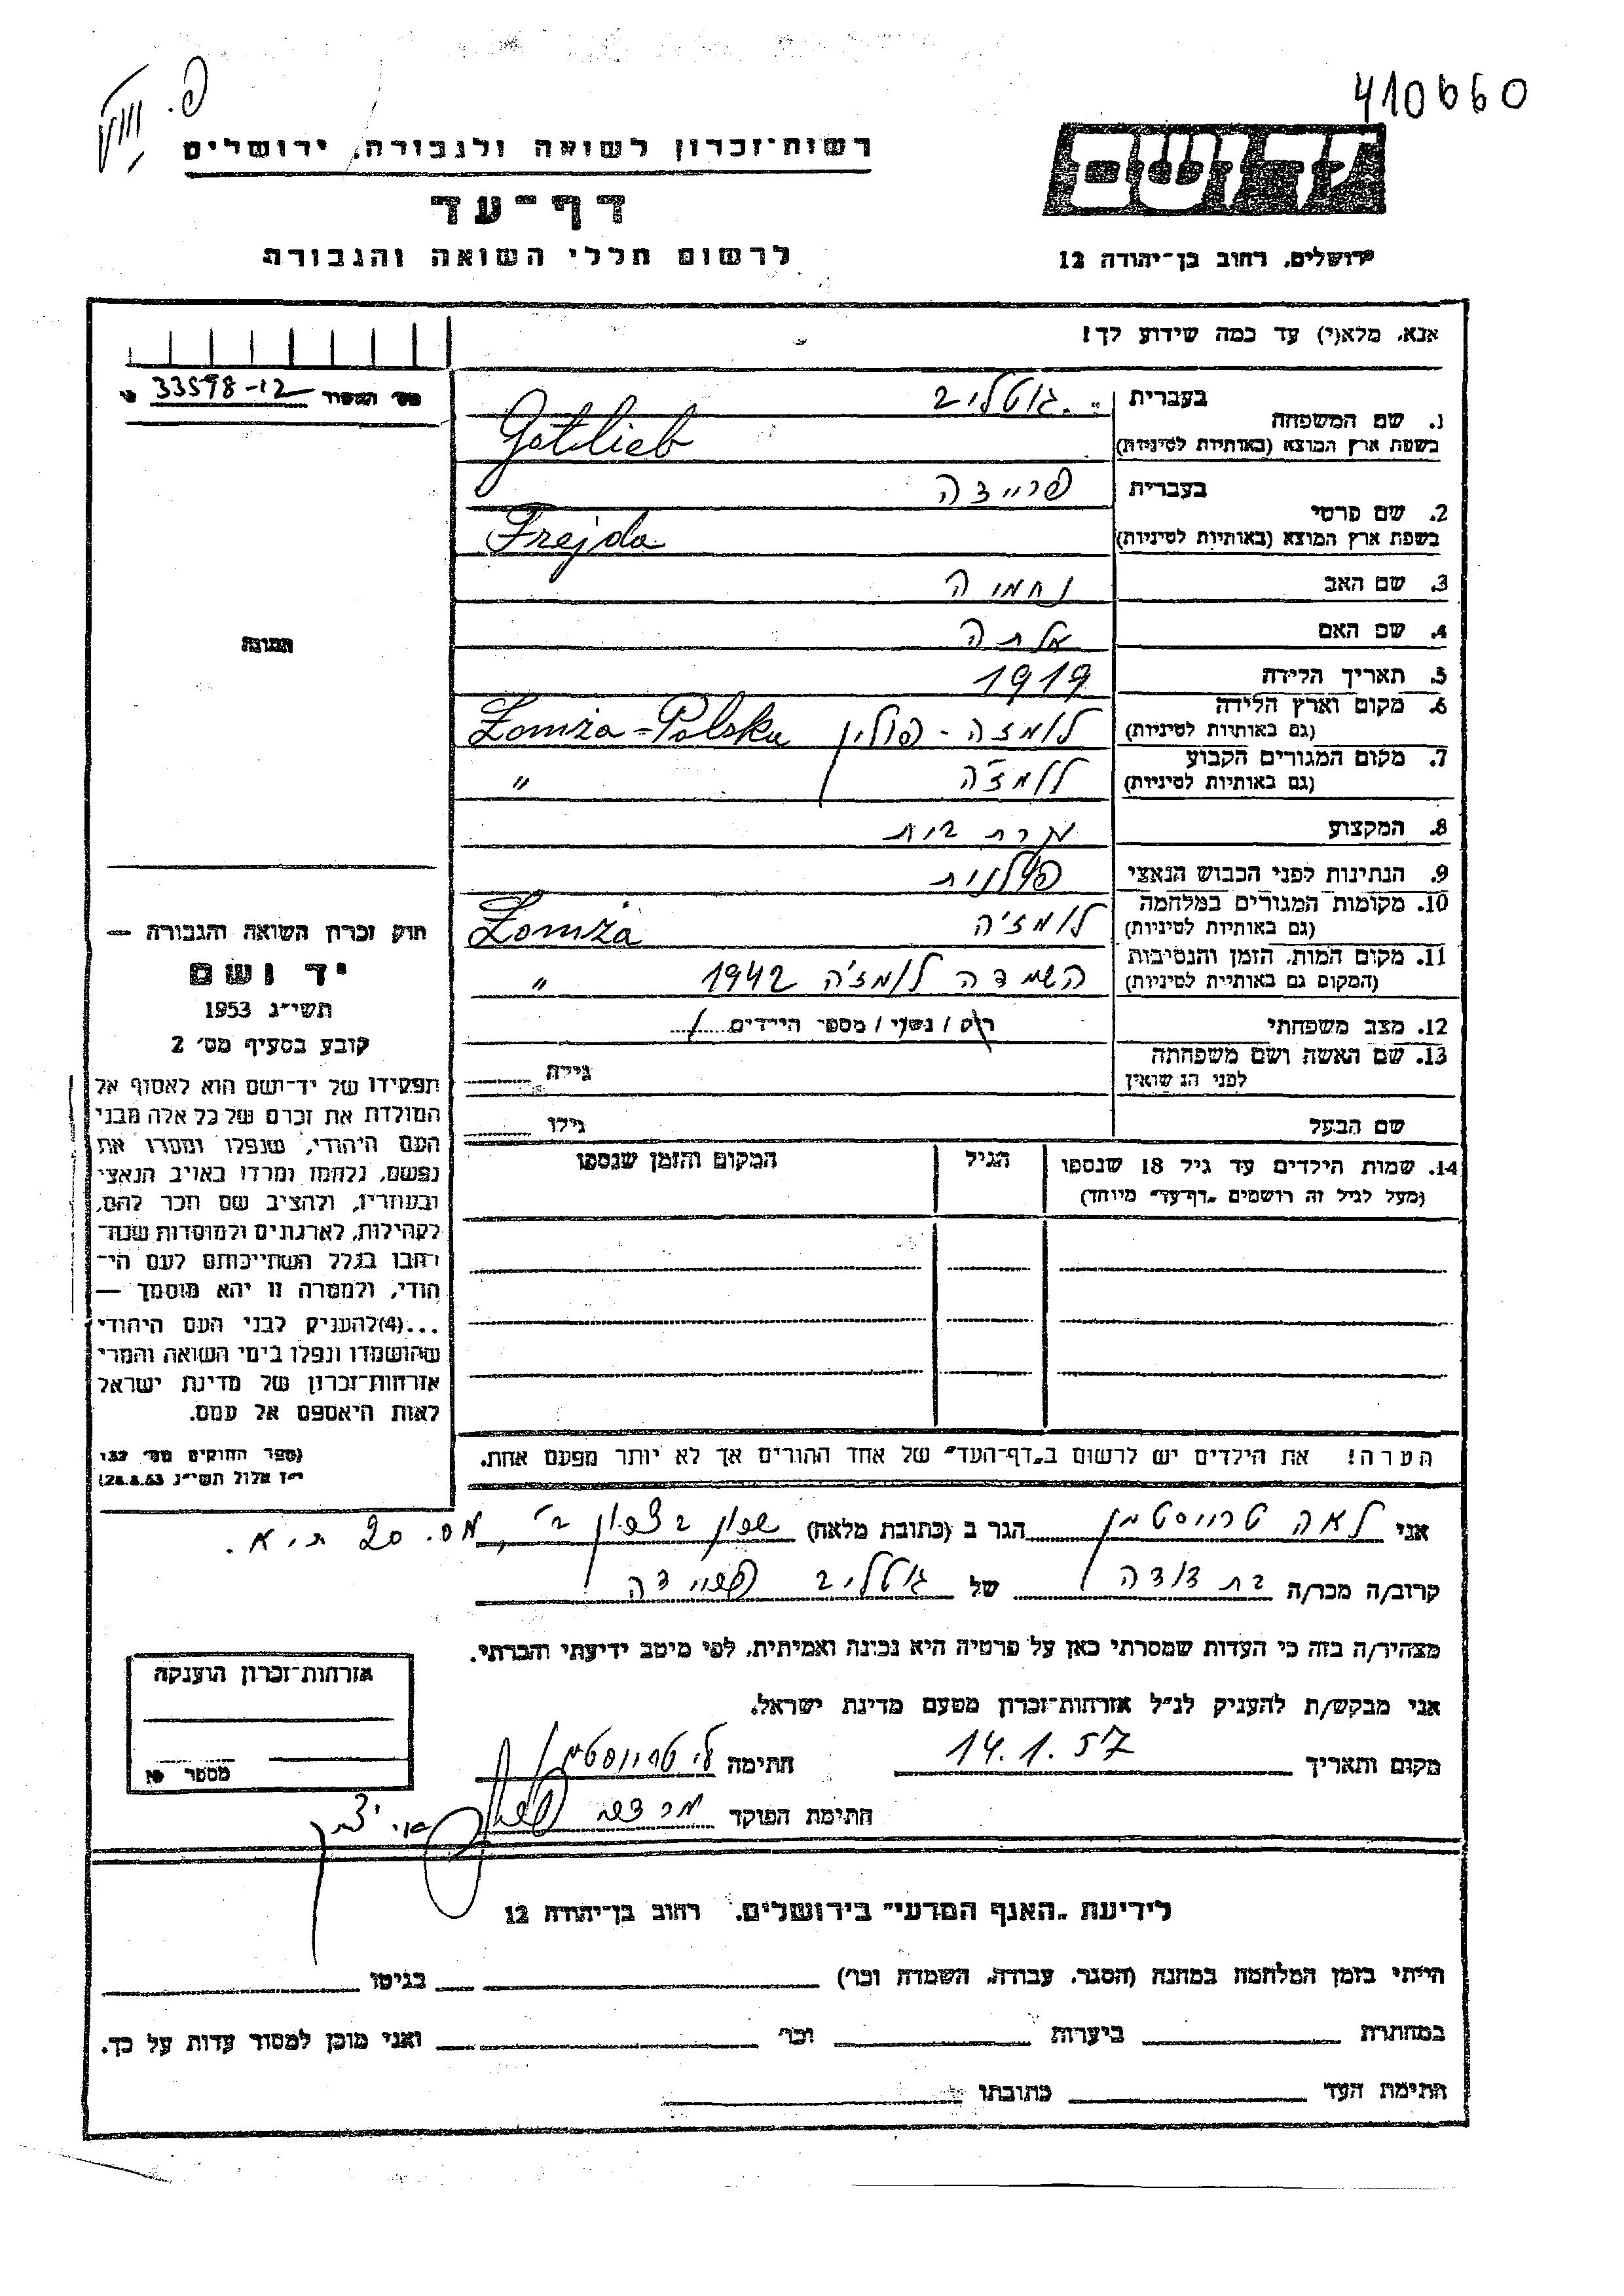 410660
רשות־זכרון לשואה ולגבורה, ירושלים
דף־עד
לרשום חללי השואה והגבורה
יד ושם
ירושלים, רחוב בן־יהודה 12
אנא, מלא(י) עד כמה שידוע לך!
33598-12
1. שם המשפחה בעברית גוטליב
בשפת ארץ המוצא (באותיות לטיניות) Gotlieb
2. שם פרטי בעברית פריידה
בשפת ארץ המוצא (באותיות לטיניות) Frejda
3. שם האב נחמיה
4. שם האם אלתה
5. תאריך הלידה 1919
6. מקום וארץ הלידה לומזה - פולין Łomża - Polska
(גם באותיות לטיניות)
7. מקום המגורים הקבוע לומז'ה "
(גם באותיות לטיניות)
8. המקצוע עקרת בית
9. הנתינות לפני הכבוש הנאצי פולנית
10. מקומות המגורים במלחמה לומז'ה Łomża
(גם באותיות לטיניות)
11. מקום המות, הזמן והנסיבות השמדה לומז'ה 1942 "
(המקום גם באותיות לטיניות)
12. מצב משפחתי רוק / נשוי / מספר הילדים
13. שם האשה ושם משפחתה
לפני הנישואין גילה
שם הבעל גילו
14. שמות הילדים עד גיל 18 שנספו הגיל המקום והזמן שנספו
(מעל לגיל זה רושמים "דף־עד" מיוחד)
הערה! את הילדים יש לרשום ב"דף־העד" של אחד ההורים אך לא יותר מפעם אחת.
תמונה
חוק זכרון השואה והגבורה —
יד ושם
תשי"ג 1953
קובע בסעיף מס' 2
תפקידו של יד־ושם הוא לאסוף אל
המולדת את זכרם של כל אלה מבני
העם היהודי, שנפלו ומסרו את
נפשם, נלחמו ומרדו באויב הנאצי
ובעוזריו, ולהציב שם וזכר להם,
לקהילות, לארגונים ולמוסדות שנח־
רבו בגלל השתייכותם לעם הי־
הודי, ולמטרה זו יהא מוסמך —
...(4)להעניק לבני העם היהודי
שהושמדו ונפלו בימי השואה והמרי
אזרחות־זכרון של מדינת ישראל
לאות היאספם אל עמם.
(ספר החוקים מס' 132,
י"ז אלול תשי"ג 28.8.53)
אני לאה טרייסטמן הגר ב (כתובת מלאה) שכון בצרון ב', מס. 20 ת"א.
קרוב/ה מכר/ה בת דודה של גוטליב פריידה
מצהיר/ה בזה כי העדות שמסרתי כאן על פרטיה היא נכונה ואמיתית, לפי מיטב ידיעתי והכרתי.
אני מבקש/ת להעניק לנ"ל אזרחות־זכרון מטעם מדינת ישראל.
מקום ותאריך 14.1.57 חתימה טרייסטמן
חתימת הפוקד
אזרחות־זכרון הוענקה
מספר
לידיעת "האגף המדעי" בירושלים, רחוב בן־יהודה 12
הייתי בזמן המלחמה במחנה (הסגר, עבודה, השמדה וכו') בגיטו
במחתרת ביערות וכו' ואני מוכן למסור עדות על כך.
חתימת העד כתובתו